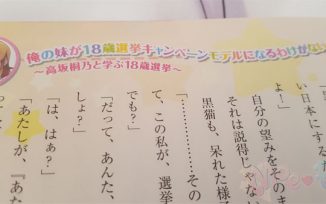 俺の妹が18歳選挙キャンペーンモデルになるわけがない
～高坂桐乃と学ぶ18歳選挙～
い日本にする
よ!」
自分の望みをそのま
それは説得じゃない
黒猫も、呆れた様
「…………その
て、この私が、選挙
でも？」
「だって、あんた、
しょ？」
「は、はぁ？」
「あたしが、『あた